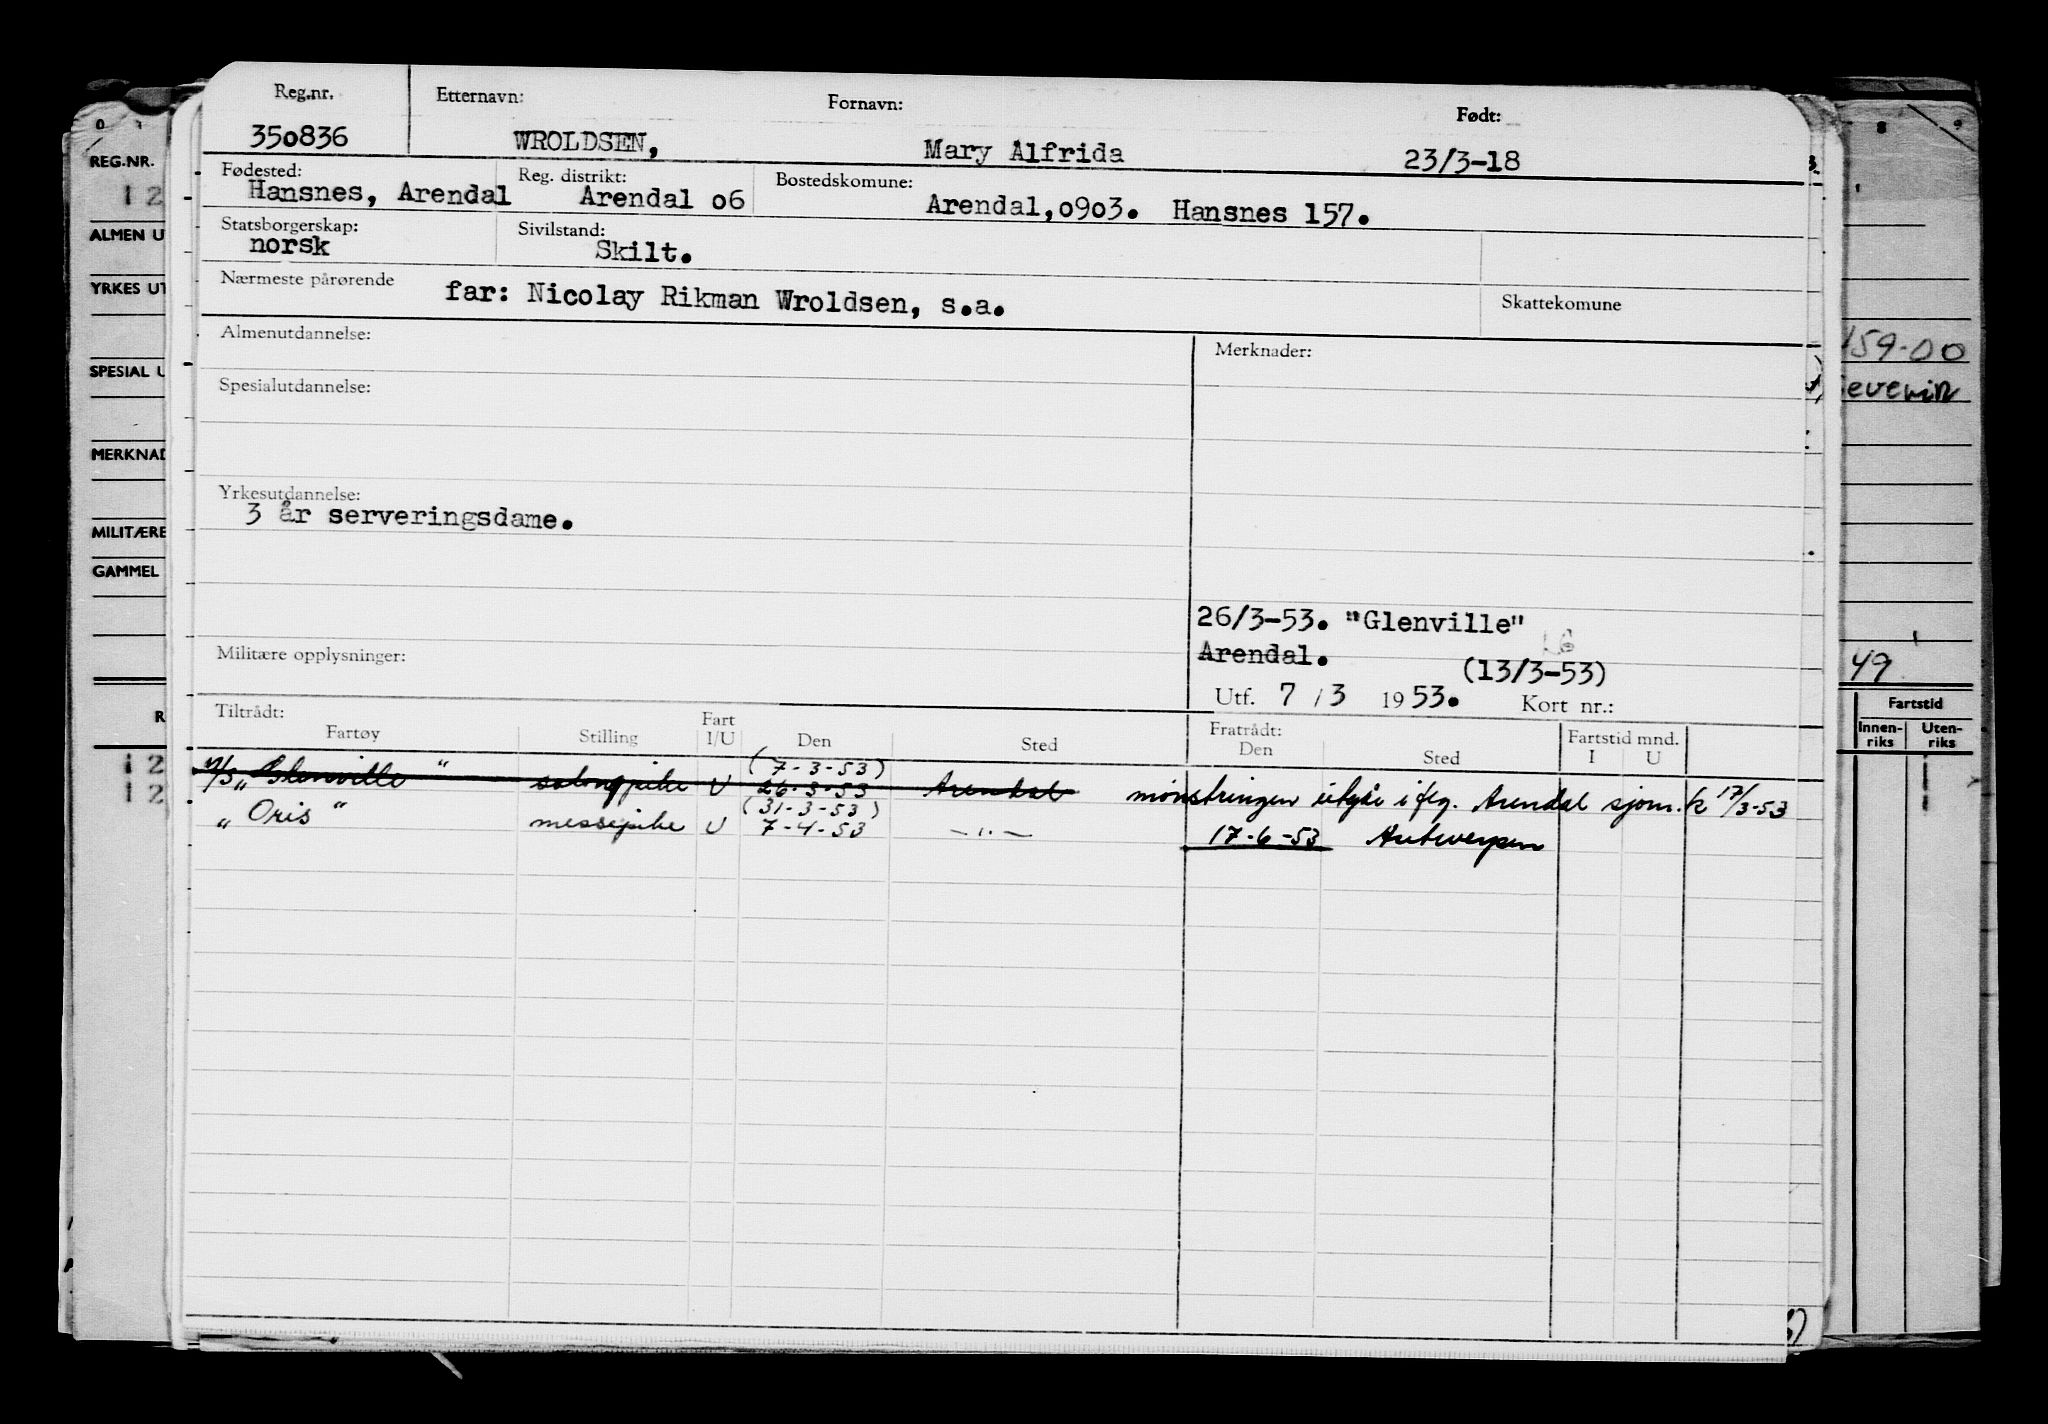 Reg.nr. Etternavn: Fornavn: Født:
350836 WROLDSEN, Mary Alfrida 23/3-18
Fødested: Reg. distrikt: Bostedskomune:
Hansnes, Arendal Arendal 06 Arendal,0903. Hansnes 157.
Statsborgerskap: Sivilstand:
norsk Skilt.
Nærmeste pårørende far: Nicolay Rikman Wroldsen, s.a. Skattekomune
Almenutdannelse: Merknader:
Spesialutdannelse:
Yrkesutdannelse:
3 år serveringsdame.
26/3-53. "Glenville"
Militære opplysninger: Arendal. (13/3-53)
Utf. 7 / 3 1953. Kort nr.:
Tiltrådt: Fratrådt:
Fartøy Stilling Fart I/U Den Sted Den Sted Fartstid mnd. I U
(7-3-53)
M/S "Glenville" salongpike U 26-3-53 Arendal mønstringen utgår i flg. Arendal sjøm.k 17/3-53
(31-3-53)
" Oris " messepike U 7-4-53 —"— 17-6-53 Antwerpen
REG.NR.
12
ALMEN U
YRKES UT
SPESIAL U
MERKNAD
MILITÆRE
GAMMEL
R
12
12
8 9
159-00
49
Fartstid
Innen-riks Uten-riks